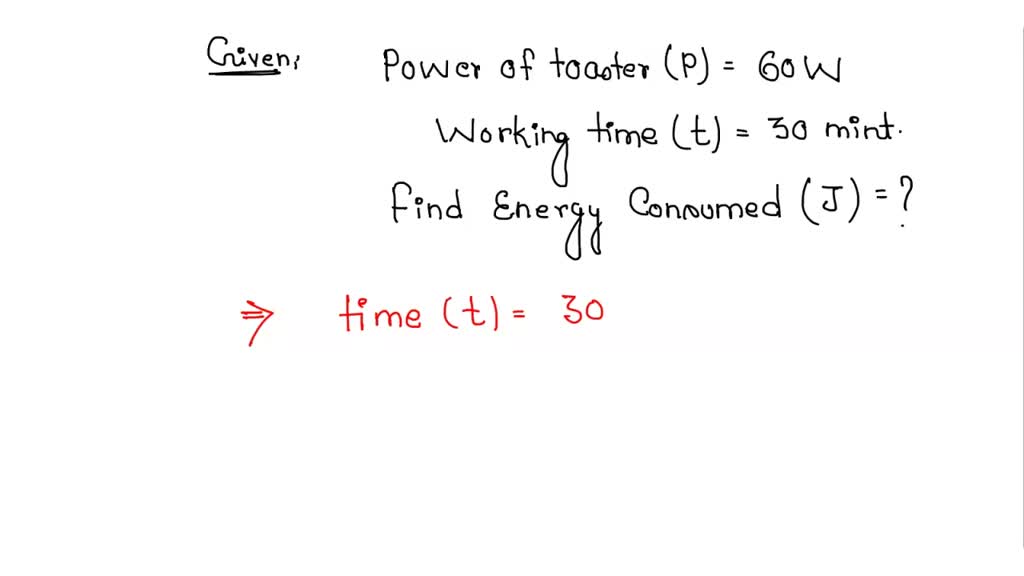 Given:
Power of toaster (P) = 60W
Working time (t) = 30 mint.
Find Energy Consumed (J) = ?
⇒ time (t) = 30